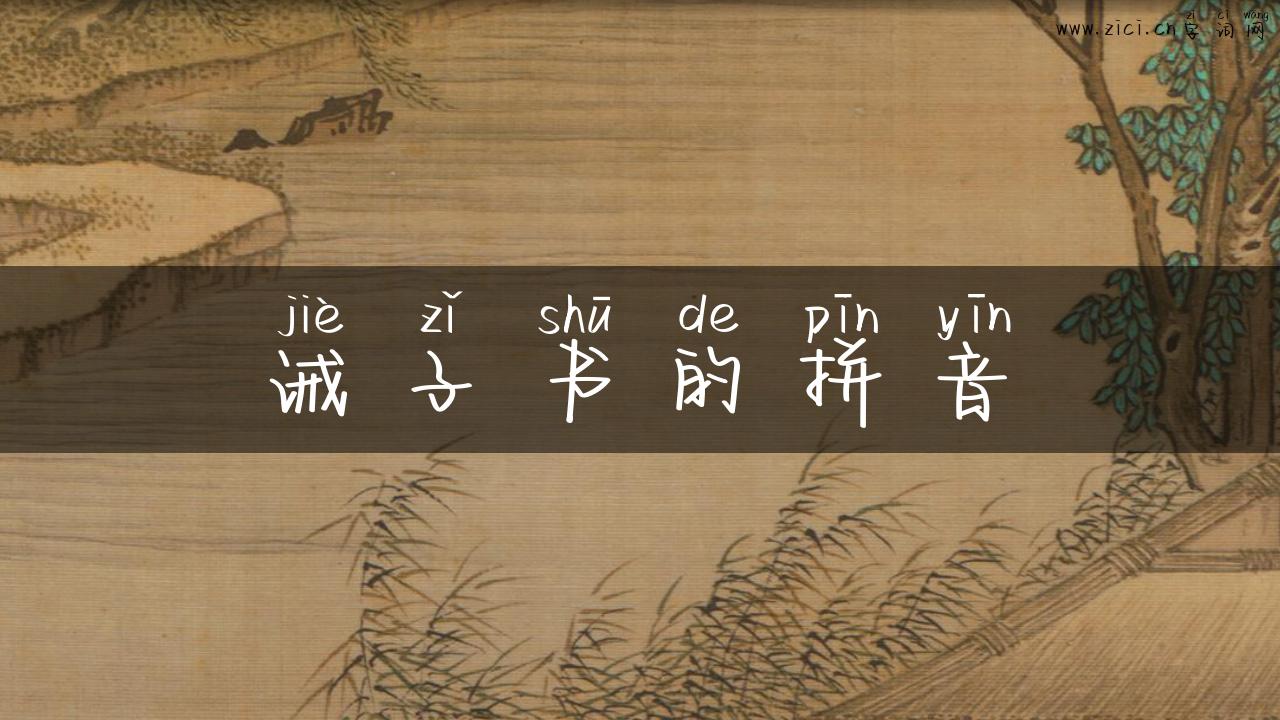 zì cí wǎng
www.zici.cn字词网
jiè zǐ shū de pīn yīn
诫子书的拼音